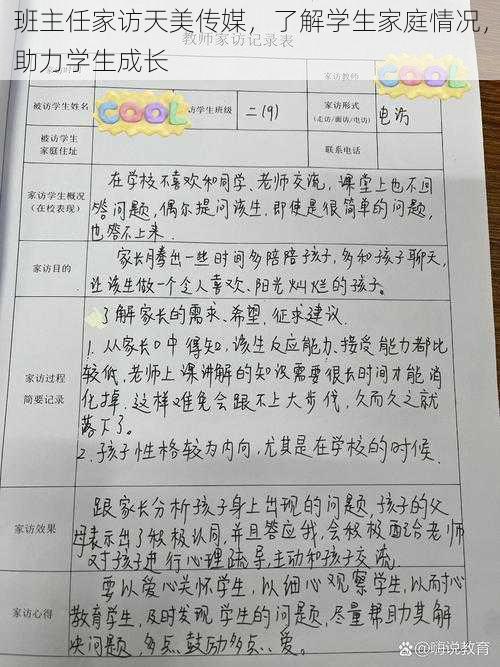 班主任家访天美传媒，了解学生家庭情况，
助力学生成长
教师家访记录表
家访时间
家访教师
COOL
被访学生姓名
COOL
访学生班级
二(9)
家访形式
(走访/面访/电访)
电访
被访学生
家庭住址
联系电话
家访学生概况
(在校表现)
在学校不喜欢和同学、老师交流，课堂上也不回
答问题，偶尔提问该生，即使是很简单的问题，
也答不上来.
家访目的
家长腾出一些时间多陪陪孩子，多和孩子聊天，
让该生做一个企人喜欢、阳光灿烂的孩子。
家访过程
简要记录
了解家长的需求、希望，征求建议.
1. 从家长口中得知，该生反应能力、接受能力都比
较低，老师上课讲解的知识需要很长时间才能消
化掉.这样难免会跟不上大步伐，久而久之就
落下了。
2.孩子性格较为内向，尤其是在学校的时候.
家访效果
跟家长分析孩子身上出现的问题，孩子的父
母表示出了积极认同，并且答应我，会积极配合老师
对孩子进行心理疏导，主动和孩子交流.
家访心得
要以爱心关怀学生，以细心观察学生，以耐心
教育学生，及时发现学生的问题，尽量帮助其解
决问题，多点鼓励多点爱。
嗨说教育